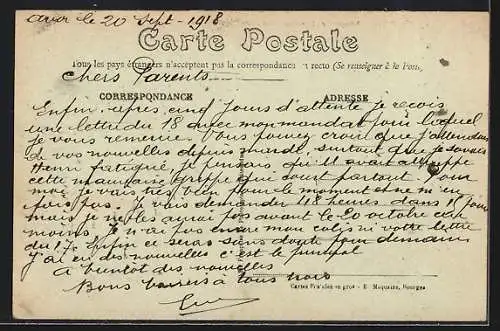 Avor le 20 Sept - 1918
Carte Postale
Tous les pays étrangers n'acceptent pas la correspondance au recto (Se renseigner à la Poste)
Chers Parents
CORRESPONDANCE ADRESSE
Enfin après cinq jours d'attente je reçois
une lettre du 18 avec mon mandat pour lequel
je vous remercie. Vous pouvez croire que j'attendais
de vos nouvelles depuis surtout que je savais
Henri fatigué, je pensais qu'il avait attrappé
cette mauvaise grippe qui court partout. Pour
moi je vais très bien pour le moment et ne m'en
fais pas. Je vais demander 48 heures dans 15 jours
mais je ne les aurai pas avant le 20 octobre au
moins. Je n'ai pas encore mon colis ni votre lettre
du 17. Enfin ce sera sans doute pour demain
j'ai eu des nouvelles c'est le principal
A bientôt des nouvelles
Bons baisers à tous trois
Cartes Postales en gros - E. Maquaire, Bourges